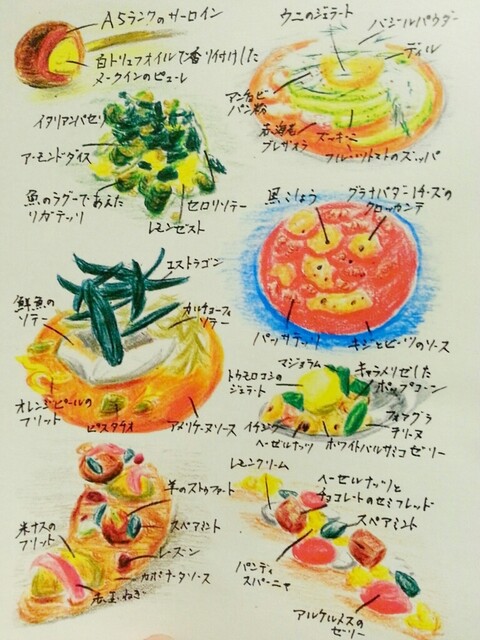 A5ランクのサーロイン
白トリュフオイルで香り付けした
メークインのピューレ
ウニのジェラート
バジルパウダー
ディル
アンチョビ
パン粉
赤海老
ブレザオラ
ズッキーニ
フルーツトマトのズッパ
イタリアンパセリ
アーモンドダイス
魚のラグーであえた
リガテッリ
セロリソテー
レモンゼスト
黒こしょう
グラナパダーノチーズの
クロッカンテ
パッサテッリ
キジとビーツのソース
エストラゴン
鮮魚の
ソテー
カルチョーフィ
ソテー
オレンジピールの
フリット
ピスタチオ
アメリケーヌソース
マジョラム
トウモロコシの
ジェラート
キャラメリゼした
ポップコーン
イチジク
ヘーゼルナッツ
フォアグラ
テリーヌ
ホワイトバルサミコゼリー
羊のストゥファート
スペアミント
米ナスの
フリット
レーズン
カポナータソース
赤玉ねぎ
レモンクリーム
ヘーゼルナッツと
チョコレートのセミフレッド
スペアミント
パンディ
スパーニャ
アルケルメスの
ゼリー